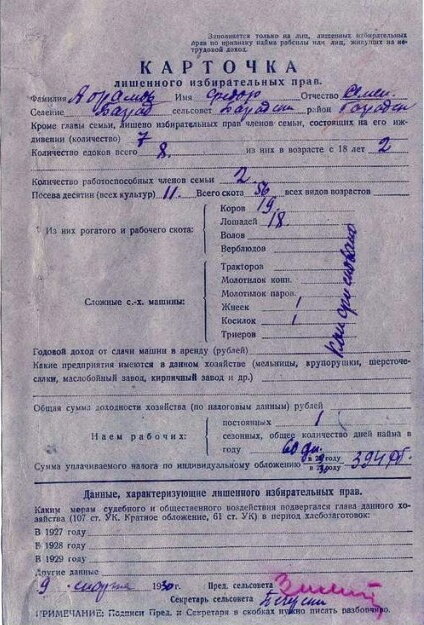 Заполняется только на лиц, лишенных избирательных
прав по признаку найма рабсилы или лиц, живущих на не-
трудовой доход.
КАРТОЧКА
лишенного избирательных прав.
Фамилия Имя Федор Отчество Семен.
Селение сельсовет район
Кроме главы семьи, лишено избирательных прав членов семьи, состоящих на его иж-
дивении (количество) 7
Количество едоков всего 8. из них в возрасте с 18 лет 2
Количество работоспособных членов семьи 2
Посева десятин (всех культур) 11. Всего скота 56 всех видов возрастов
Из них рогатого и рабочего скота:
Коров 19.
Лошадей 18.
Волов
Верблюдов
Сложные с.-х. машины:
Тракторов
Молотилок конн.
Молотилок паров.
Жнеек 1
Косилок 1
Триеров
Конфисковано
Годовой доход от сдачи машин в аренду (рублей)
Какие предприятия имеются в данном хозяйстве (мельницы, крупорушки, шерсточе-
салки, маслобойный завод, кирпичный завод и др.)
Общая сумма доходности хозяйства (по налоговым данным) рублей
Наем рабочих:
постоянных 1
сезонных, общее количество дней найма в
году 60 дн.
Сумма уплачиваемого налога по индивидуальному обложению в году
в году 394 р.
Данные, характеризующие лишенного избирательных прав.
Каким мерам судебного и общественного воздействия подвергался глава данного хо-
зяйства (107 ст. УК. Кратное обложение, 61 ст. УК) в период хлебозаготовок:
В 1927 году
В 1928 году
В 1929 году
Другие данные
9 . марта 1930 г. Пред. сельсовета
Секретарь сельсовета
ПРИМЕЧАНИЕ: Подписи Пред. и Секретаря в скобках нужно писать разборчиво.